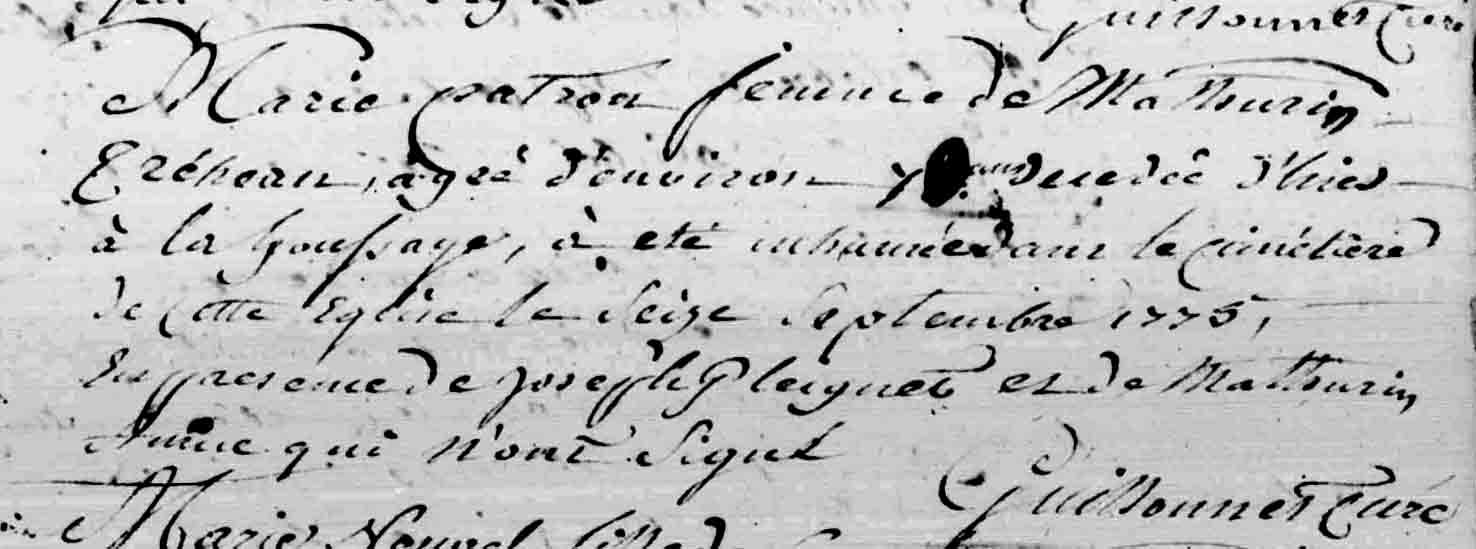 Guillonnet Curé
Marie patron femme de Mathurin
Tréhoran, agé d'environ ans decedée d'hier
à la houssaye, à eté inhumée dans le cimétiere
de cette Eglise le Seize Septembre 1775,
En presence de joseph pleignet et de Mathurin
qui n'ont Signé
Guillonnet Curé
Marie fille de